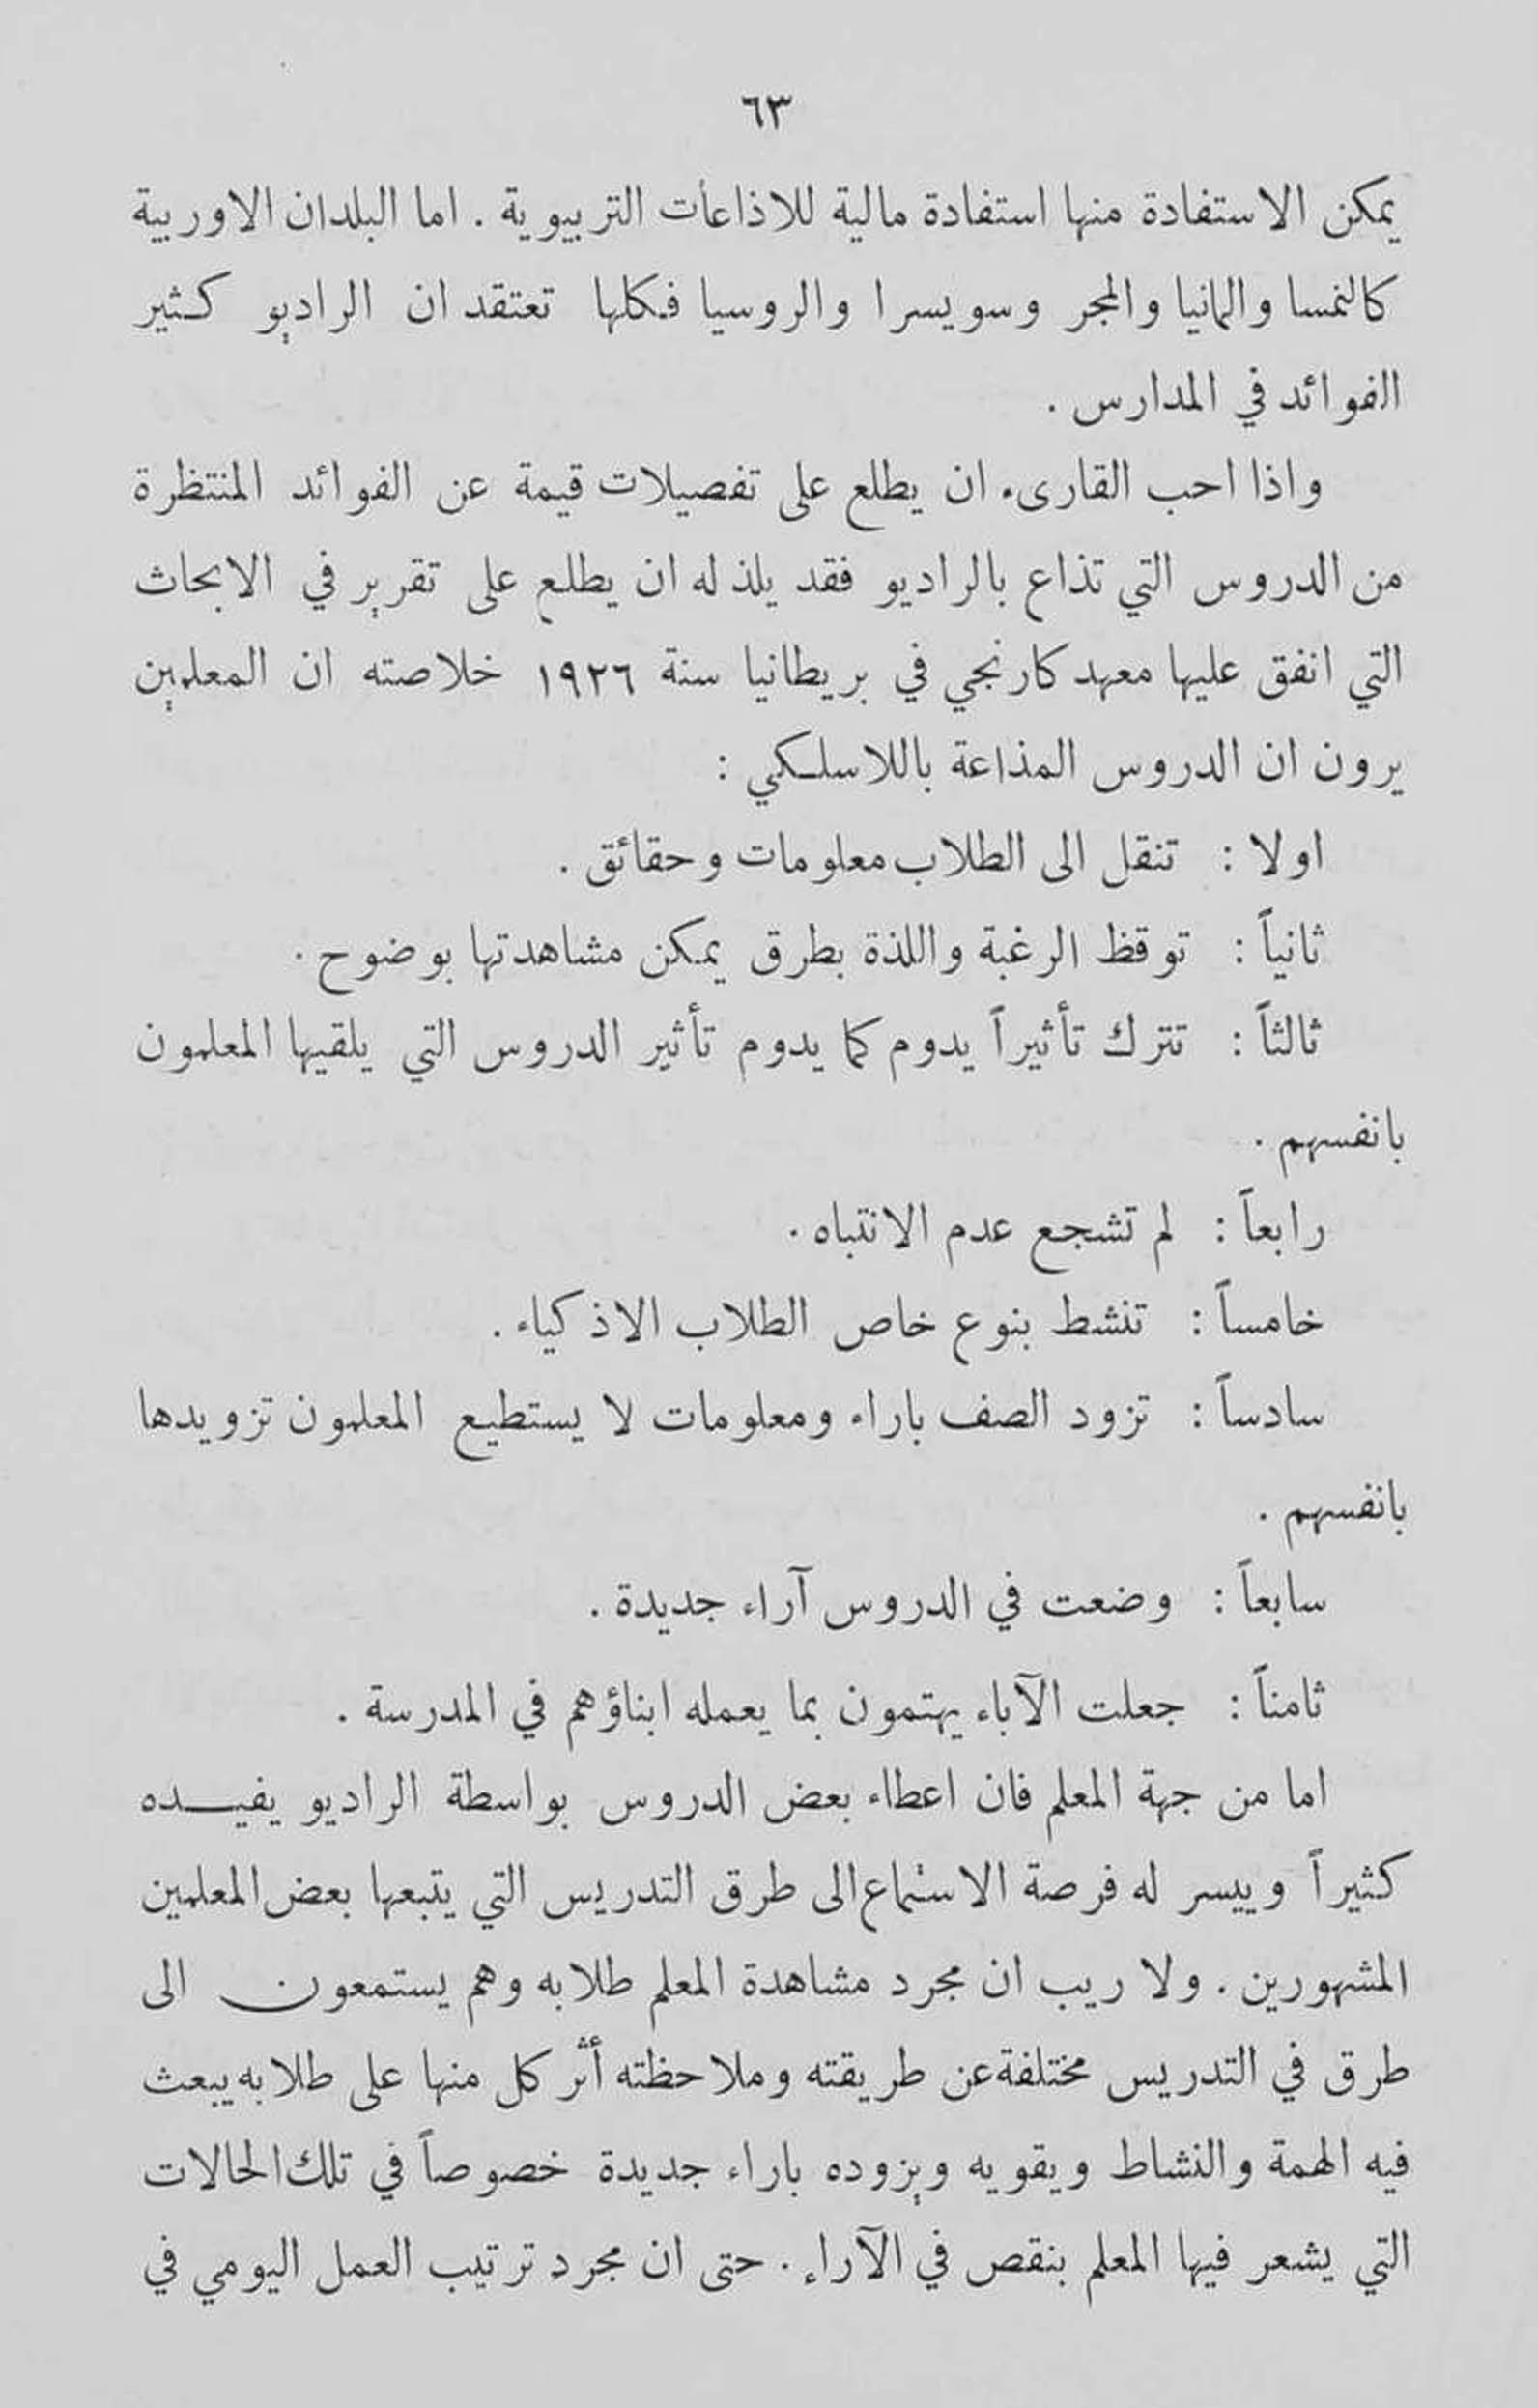 ٦٣
يمكن الاستفادة منها استفادة مالية للاذاعات التربيوية . اما البلدان الاوربية
كالنمسا والمانيا والمجر وسويسرا والروسيا فكلها تعتقد ان الراديو كثير
الفوائد في المدارس .
واذا احب القارىء ان يطلع على تفصيلات قيمة عن الفوائد المنتظرة
من الدروس التي تذاع بالراديو فقد يلذ له ان يطلع على تقرير في الابحاث
التي انفق عليها معهد كارنجي في بريطانيا سنة ١٩٢٦ خلاصته ان المعلمين
يرون ان الدروس المذاعة باللاسلكي :
اولا : تنقل الى الطلاب معلومات وحقائق .
ثانياً : توقظ الرغبة واللذة بطرق يمكن مشاهدتها بوضوح .
ثالثاً : تترك تأثيراً يدوم كما يدوم تأثير الدروس التي يلقيها المعلمون
بانفسهم .
رابعاً : لم تشجع عدم الانتباه .
خامساً : تنشط بنوع خاص الطلاب الاذكياء .
سادساً : تزود الصف باراء ومعلومات لا يستطيع المعلمون تزويدها
بانفسهم .
سابعاً : وضعت في الدروس آراء جديدة .
ثامناً : جعلت الآباء يهتمون بما يعمله ابناؤهم في المدرسة .
اما من جهة المعلم فان اعطاء بعض الدروس بواسطة الراديو يفيـــده
كثيراً وييسر له فرصة الاستماع الى طرق التدريس التي يتبعها بعض المعلمين
المشهورين . ولا ريب ان مجرد مشاهدة المعلم طلابه وهم يستمعون الى
طرق في التدريس مختلفة عن طريقته وملاحظته أثر كل منها على طلابه يبعث
فيه الهمة والنشاط ويقويه ويزوده باراء جديدة خصوصاً في تلك الحالات
التي يشعر فيها المعلم بنقص في الآراء . حتى ان مجرد ترتيب العمل اليومي في